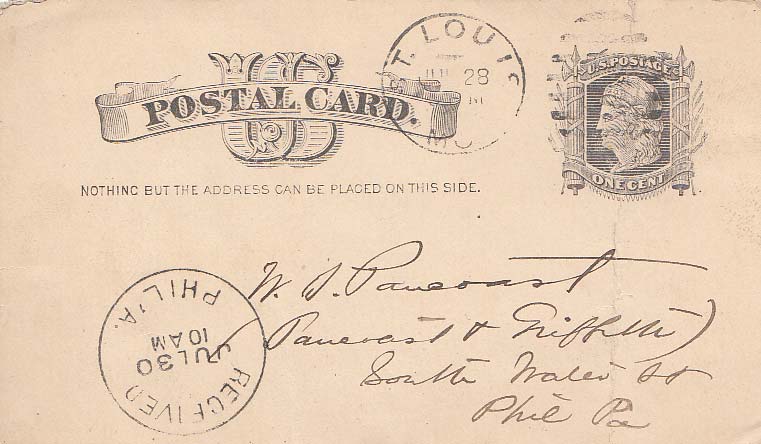 US
POSTAL CARD.
NOTHING BUT THE ADDRESS CAN BE PLACED ON THIS SIDE.
ST. LOUIS
28
MO
U.S. POSTAGE
ONE CENT
W. S. Pancoast
(Pancoast & Griffith)
South Water St
Phil Pa
RECEIVED
JUL 30
10 AM
PHIL'A.